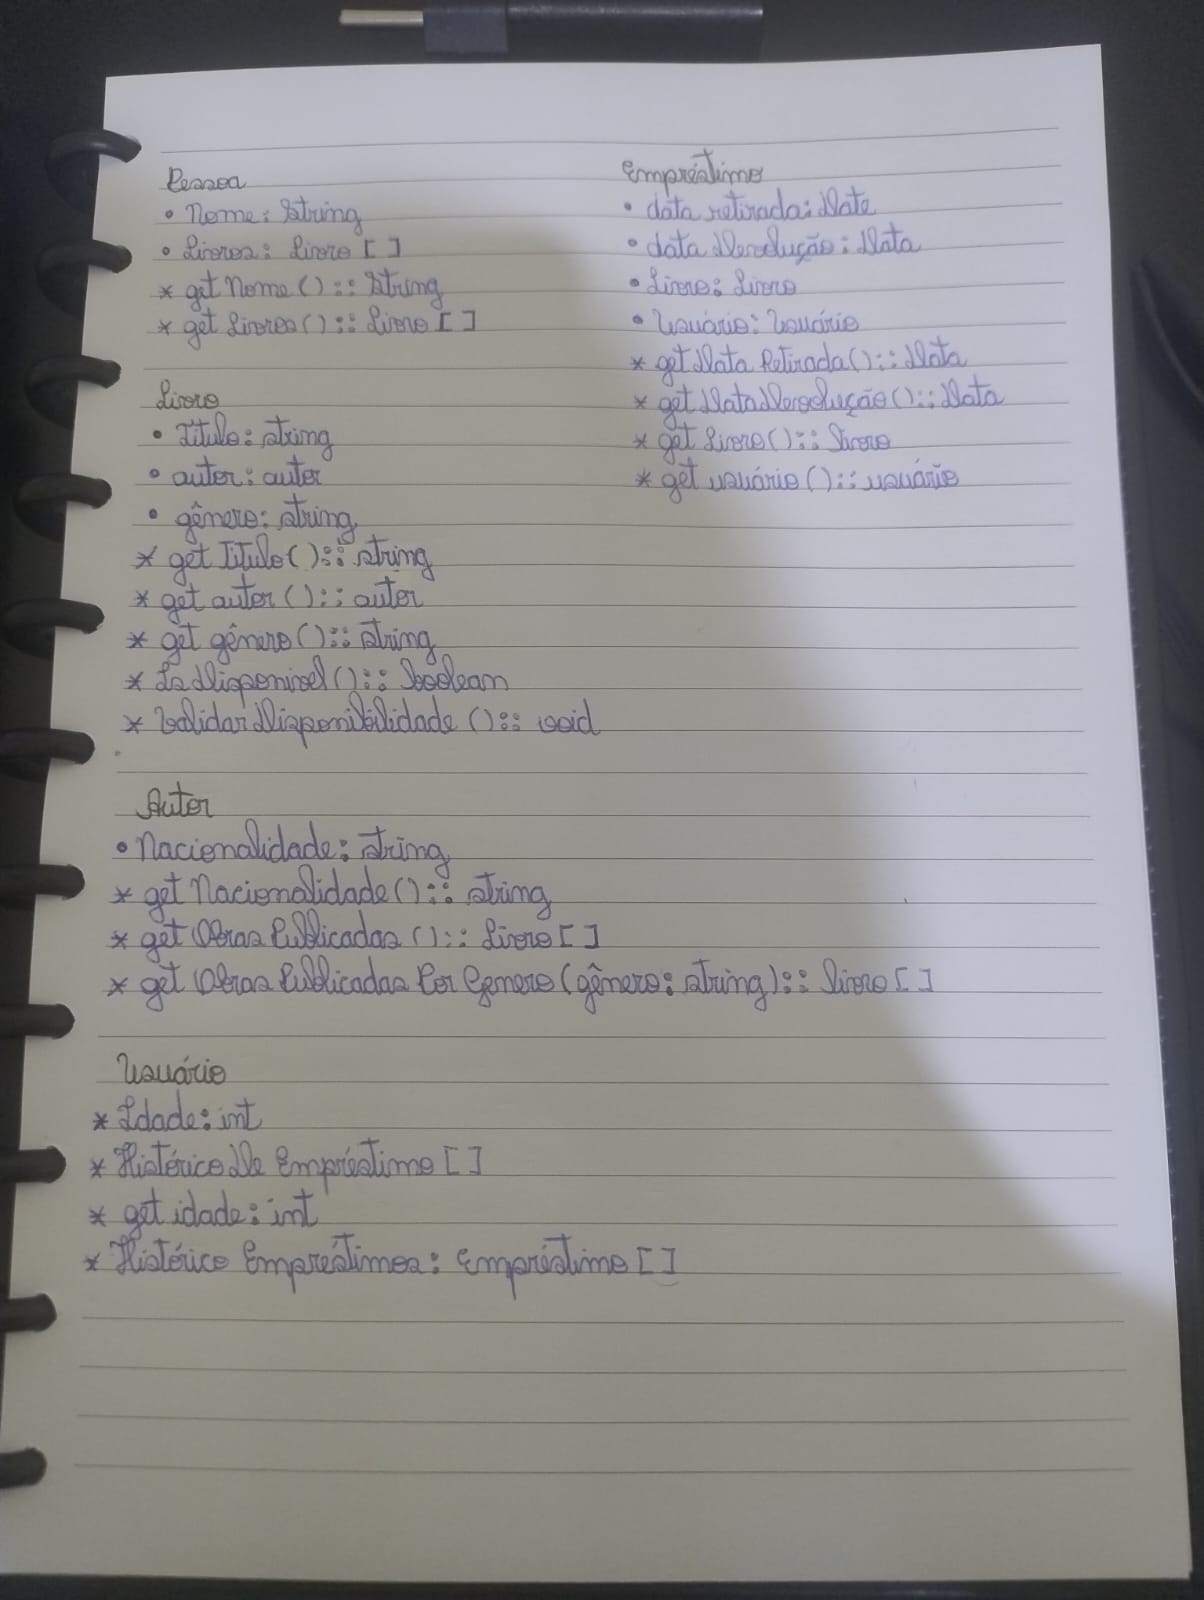 Pessoa
• Nome: String
• Livros: Livro []
* get Nome ():: String
* get Livros():: Livro []
Livro
• Titulo: string
• autor: autor
• gênero: string
* get Titulo():: string
* get autor ():: autor
* get gênero():: string
* Is Disponivel():: boolean
* Validar Disponibilidade ():: void
Autor
• Nacionalidade: string
* get Nacionalidade():: string
* get Obras Publicadas ():: Livro []
* get Obras Publicadas Por Genero (gênero: string):: livro []
Usuário
* Idade: int
* Histórico De Empréstimo []
* get idade: int
* Histórico Empréstimos: Empréstimo []
Empréstimo
• data retirada: Date
• data Devolução: Data
• Livro: Livro
• Usuário: Usuário
* get Data Retirada():: Data
* get Data Devolução():: Data
* get Livro():: Livro
* get usuário ():: usuário